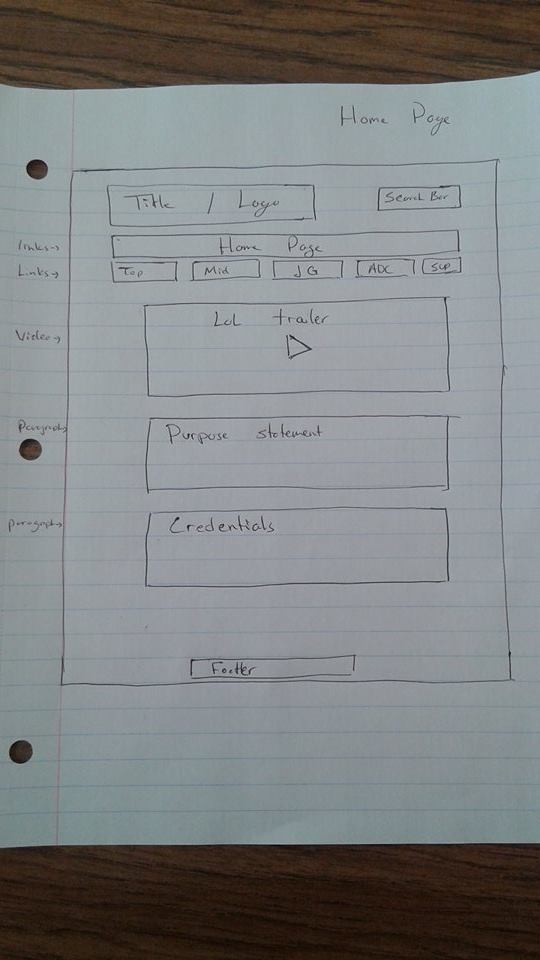 Home Page
Title / Logo
Search Bar
links→ Home Page
Links→ Top Mid JG ADC Sup
Video→ LoL trailer
Paragraph→ Purpose statement
paragraph→ Credentials
Footer